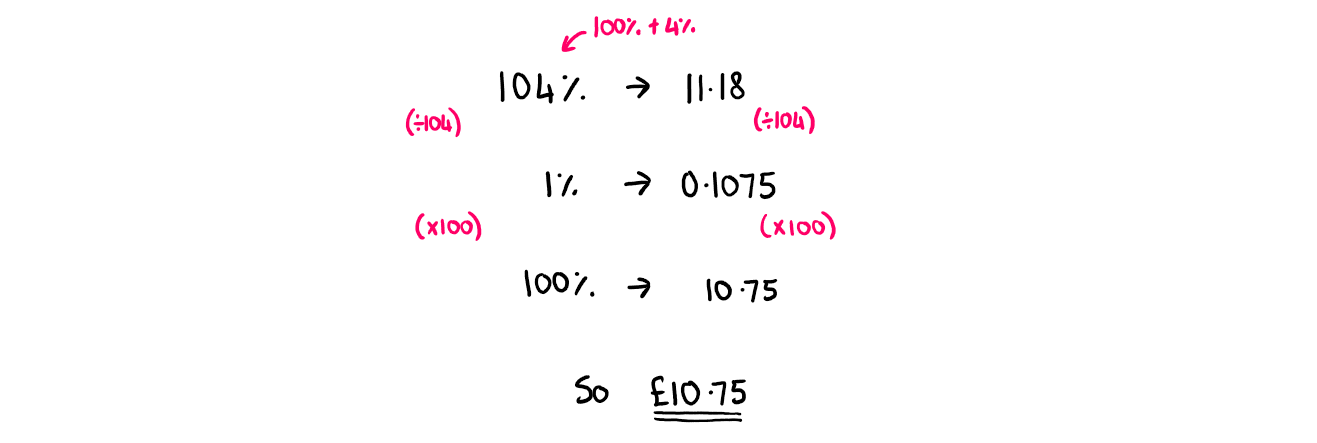 100% + 4%
104% → 11.18
(÷104) (÷104)
1% → 0.1075
(×100) (×100)
100% → 10.75
So £10.75